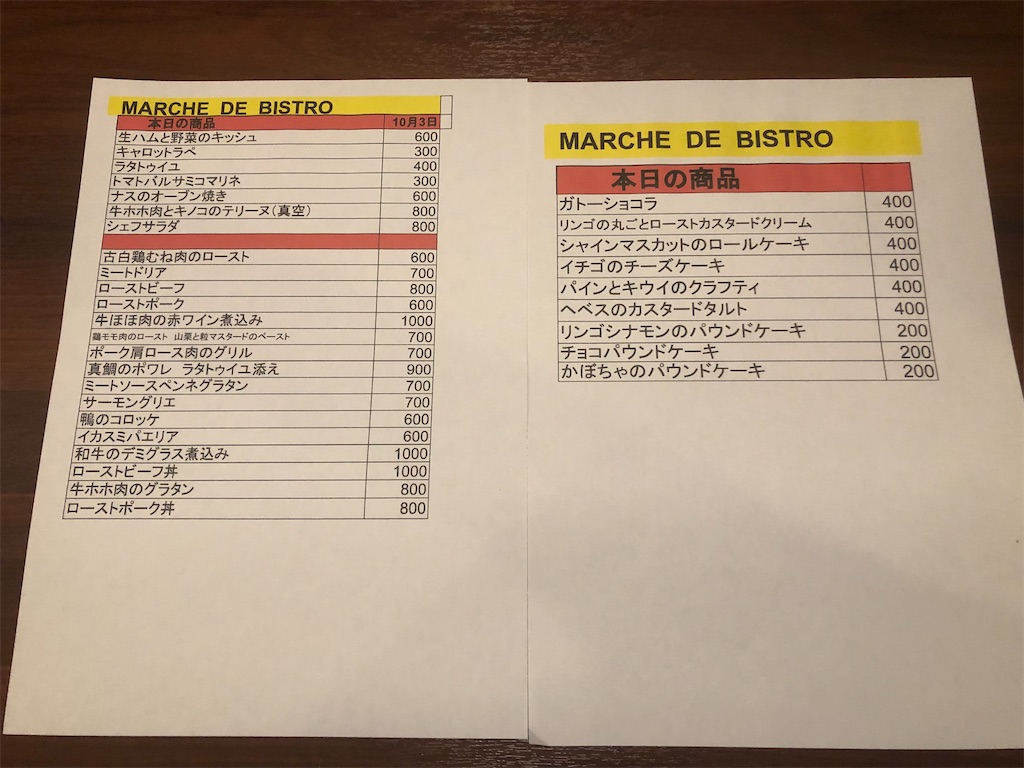 MARCHE DE BISTRO
本日の商品 10月3日
生ハムと野菜のキッシュ 600
キャロットラペ 300
ラタトゥイユ 400
トマトバルサミコマリネ 300
ナスのオーブン焼き 600
牛ホホ肉とキノコのテリーヌ(真空) 800
シェフサラダ 800
古白鶏むね肉のロースト 600
ミートドリア 700
ローストビーフ 800
ローストポーク 600
牛ほほ肉の赤ワイン煮込み 1000
鶏モモ肉のロースト 山栗と粒マスタードのペースト 700
ポーク肩ロース肉のグリル 700
真鯛のポワレ ラタトゥイユ添え 900
ミートソースペンネグラタン 700
サーモングリエ 700
鴨のコロッケ 600
イカスミパエリア 600
和牛のデミグラス煮込み 1000
ローストビーフ丼 1000
牛ホホ肉のグラタン 800
ローストポーク丼 800
MARCHE DE BISTRO
本日の商品
ガトーショコラ 400
リンゴの丸ごとローストカスタードクリーム 400
シャインマスカットのロールケーキ 400
イチゴのチーズケーキ 400
パインとキウイのクラフティ 400
ヘベスのカスタードタルト 400
リンゴシナモンのパウンドケーキ 200
チョコパウンドケーキ 200
かぼちゃのパウンドケーキ 200